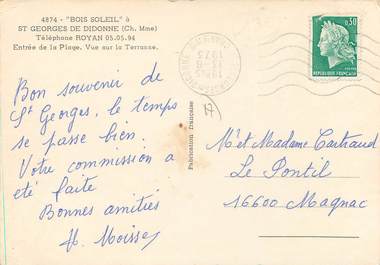 4874 - "BOIS SOLEIL" à
ST GEORGES DE DIDONNE (Ch. Mme)
Téléphone ROYAN 05.05.94
Entrée de la Plage. Vue sur la Terrasse.
Bon souvenir de
St Georges, le temps
se passe bien.
Votre commission a
été faite
Bonnes amitiés
Fabrication française
17
0,30
REPUBLIQUE FRANÇAISE
1975
M. et Madame Cartraud
Le Pontil
16600 Magnac